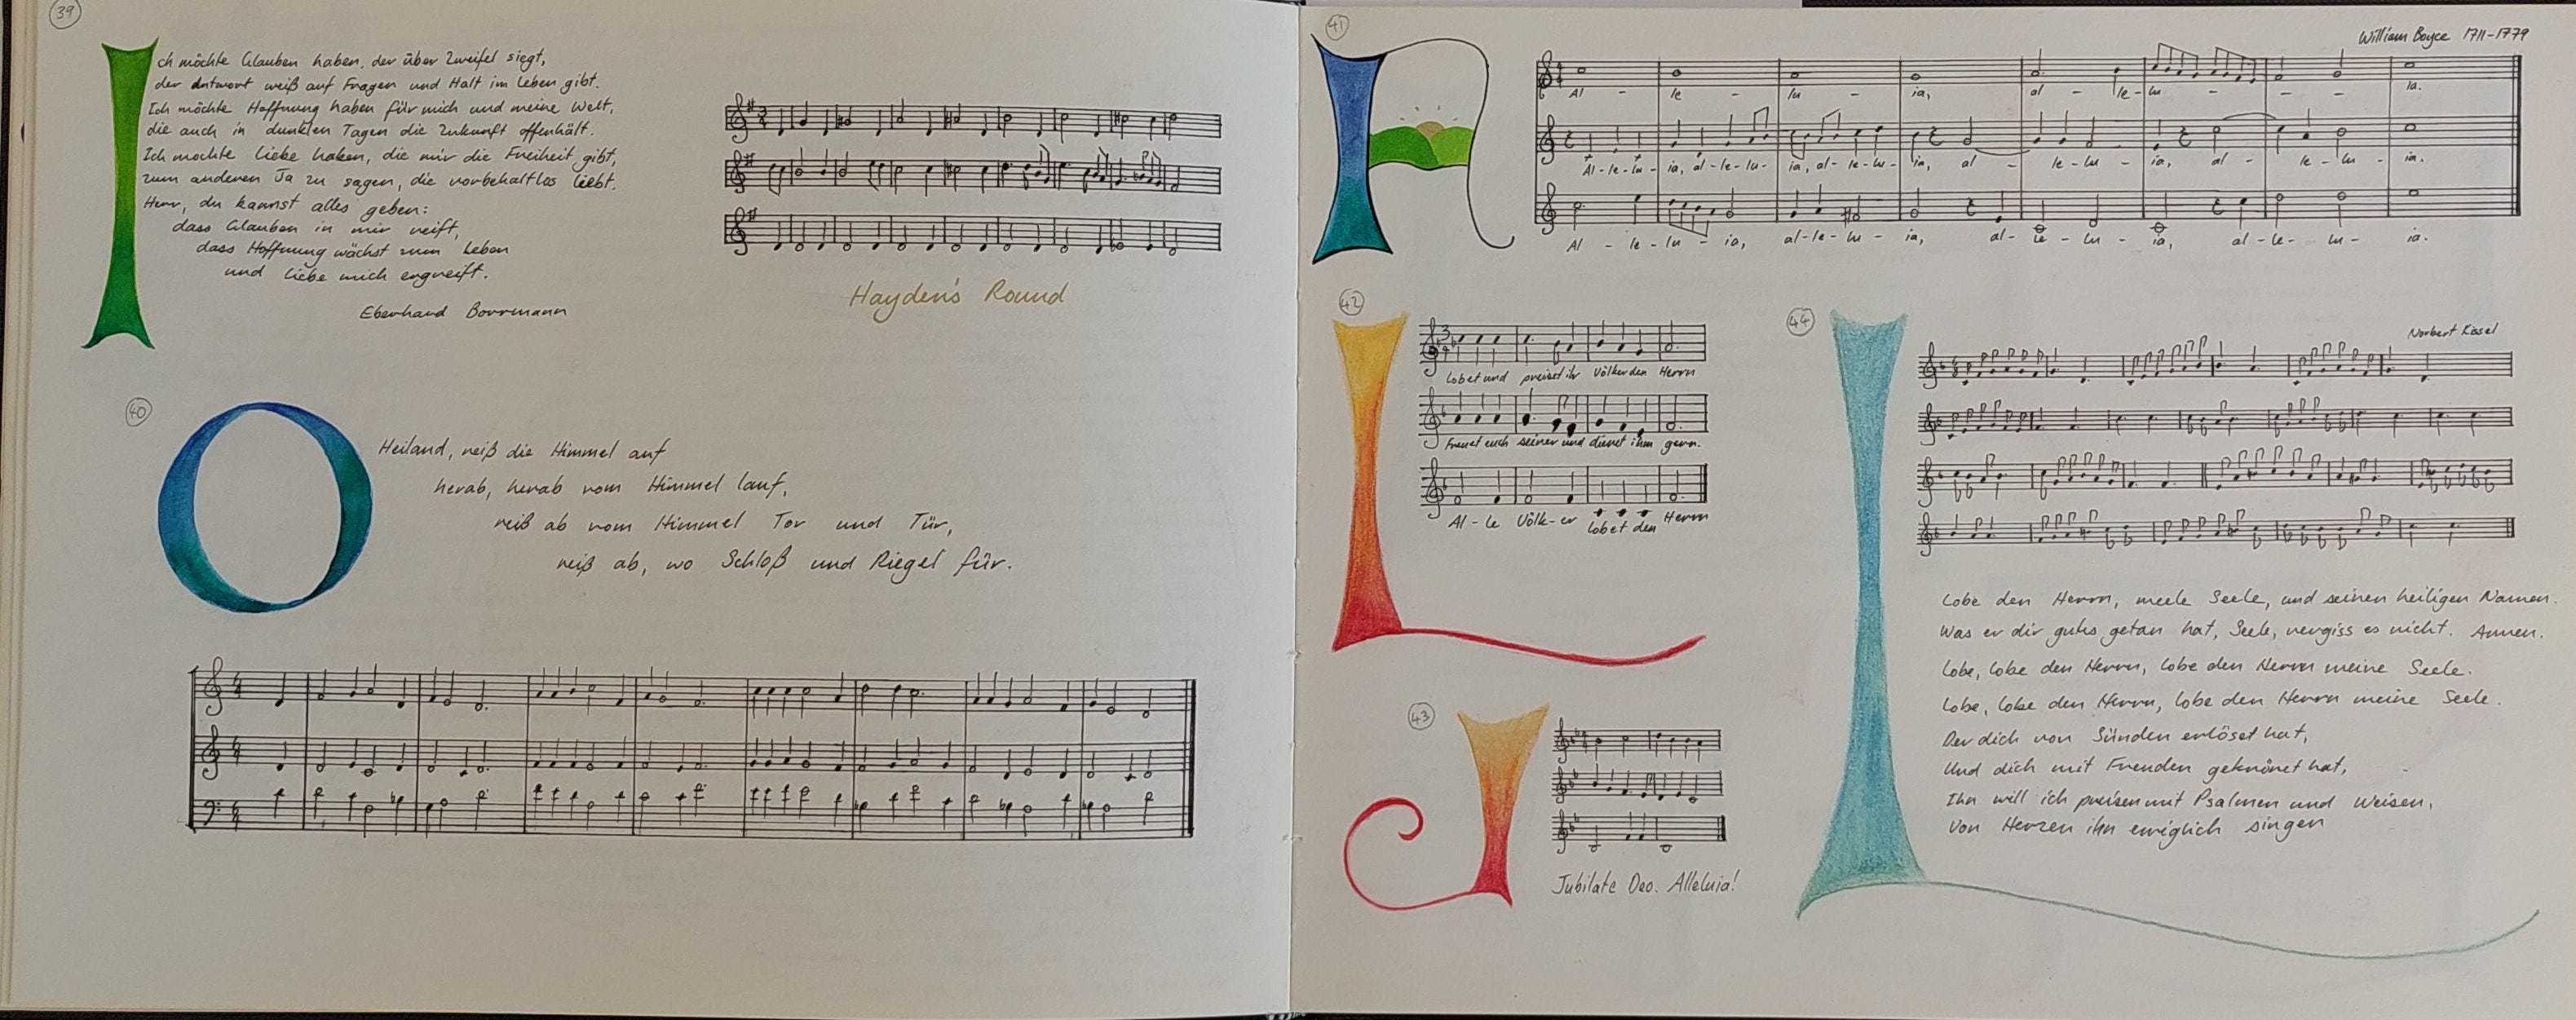 39
Ich möchte Glauben haben, der über Zweifel siegt,
der Antwort weiß auf Fragen und Halt im Leben gibt.
Ich möchte Hoffnung haben für mich und meine Welt,
die auch in dunklen Tagen die Zukunft offenhält.
Ich möchte Liebe haben, die mir die Freiheit gibt,
zum anderen Ja zu sagen, die vorbehaltlos liebt.
Herr, du kannst alles geben:
dass Glauben in mir reift,
dass Hoffnung wächst zum Leben
und Liebe mich ergreift.
Eberhard Borrmann
Hayden's Round
40
O Heiland, reiß die Himmel auf
herab, herab vom Himmel lauf,
reiß ab vom Himmel Tor und Tür,
reiß ab, wo Schloß und Riegel für.
41
A
William Boyce 1711-1779
Al - le - lu - ia, al - le - lu - - - ia.
Al - le - lu - ia, al - le - lu - ia, al - le - lu - ia, al - le - lu - ia, al - le - lu - ia.
Al - le - lu - ia, al - le - lu - ia, al - le - lu - ia, al - le - lu - ia.
42
L
Lobet und preiset ihr Völker den Herrn
Freuet euch seiner und dienet ihm gern.
Al - le Völk - er lobet den Herrn
43
J
Jubilate Deo. Alleluia!
44
L
Norbert Kissel
Lobe den Herrn, meele Seele, und seinen heiligen Namen.
Was er dir gutes getan hat, Seele, vergiss es nicht. Amen.
Lobe, lobe den Herrn, lobe den Herrn meine Seele.
Lobe, lobe den Herrn, lobe den Herrn meine Seele.
Der dich von Sünden erlöset hat,
Und dich mit Freuden gekrönet hat,
Ihn will ich preisen mit Psalmen und Weisen,
Von Herzen ihn ewiglich singen